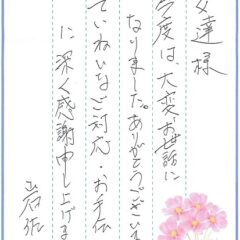 安達様
今度は、大変お世話に
なりました。ありがとうござい
ていねいなご対応・お手伝
に深く感謝申し上げる
岩佐